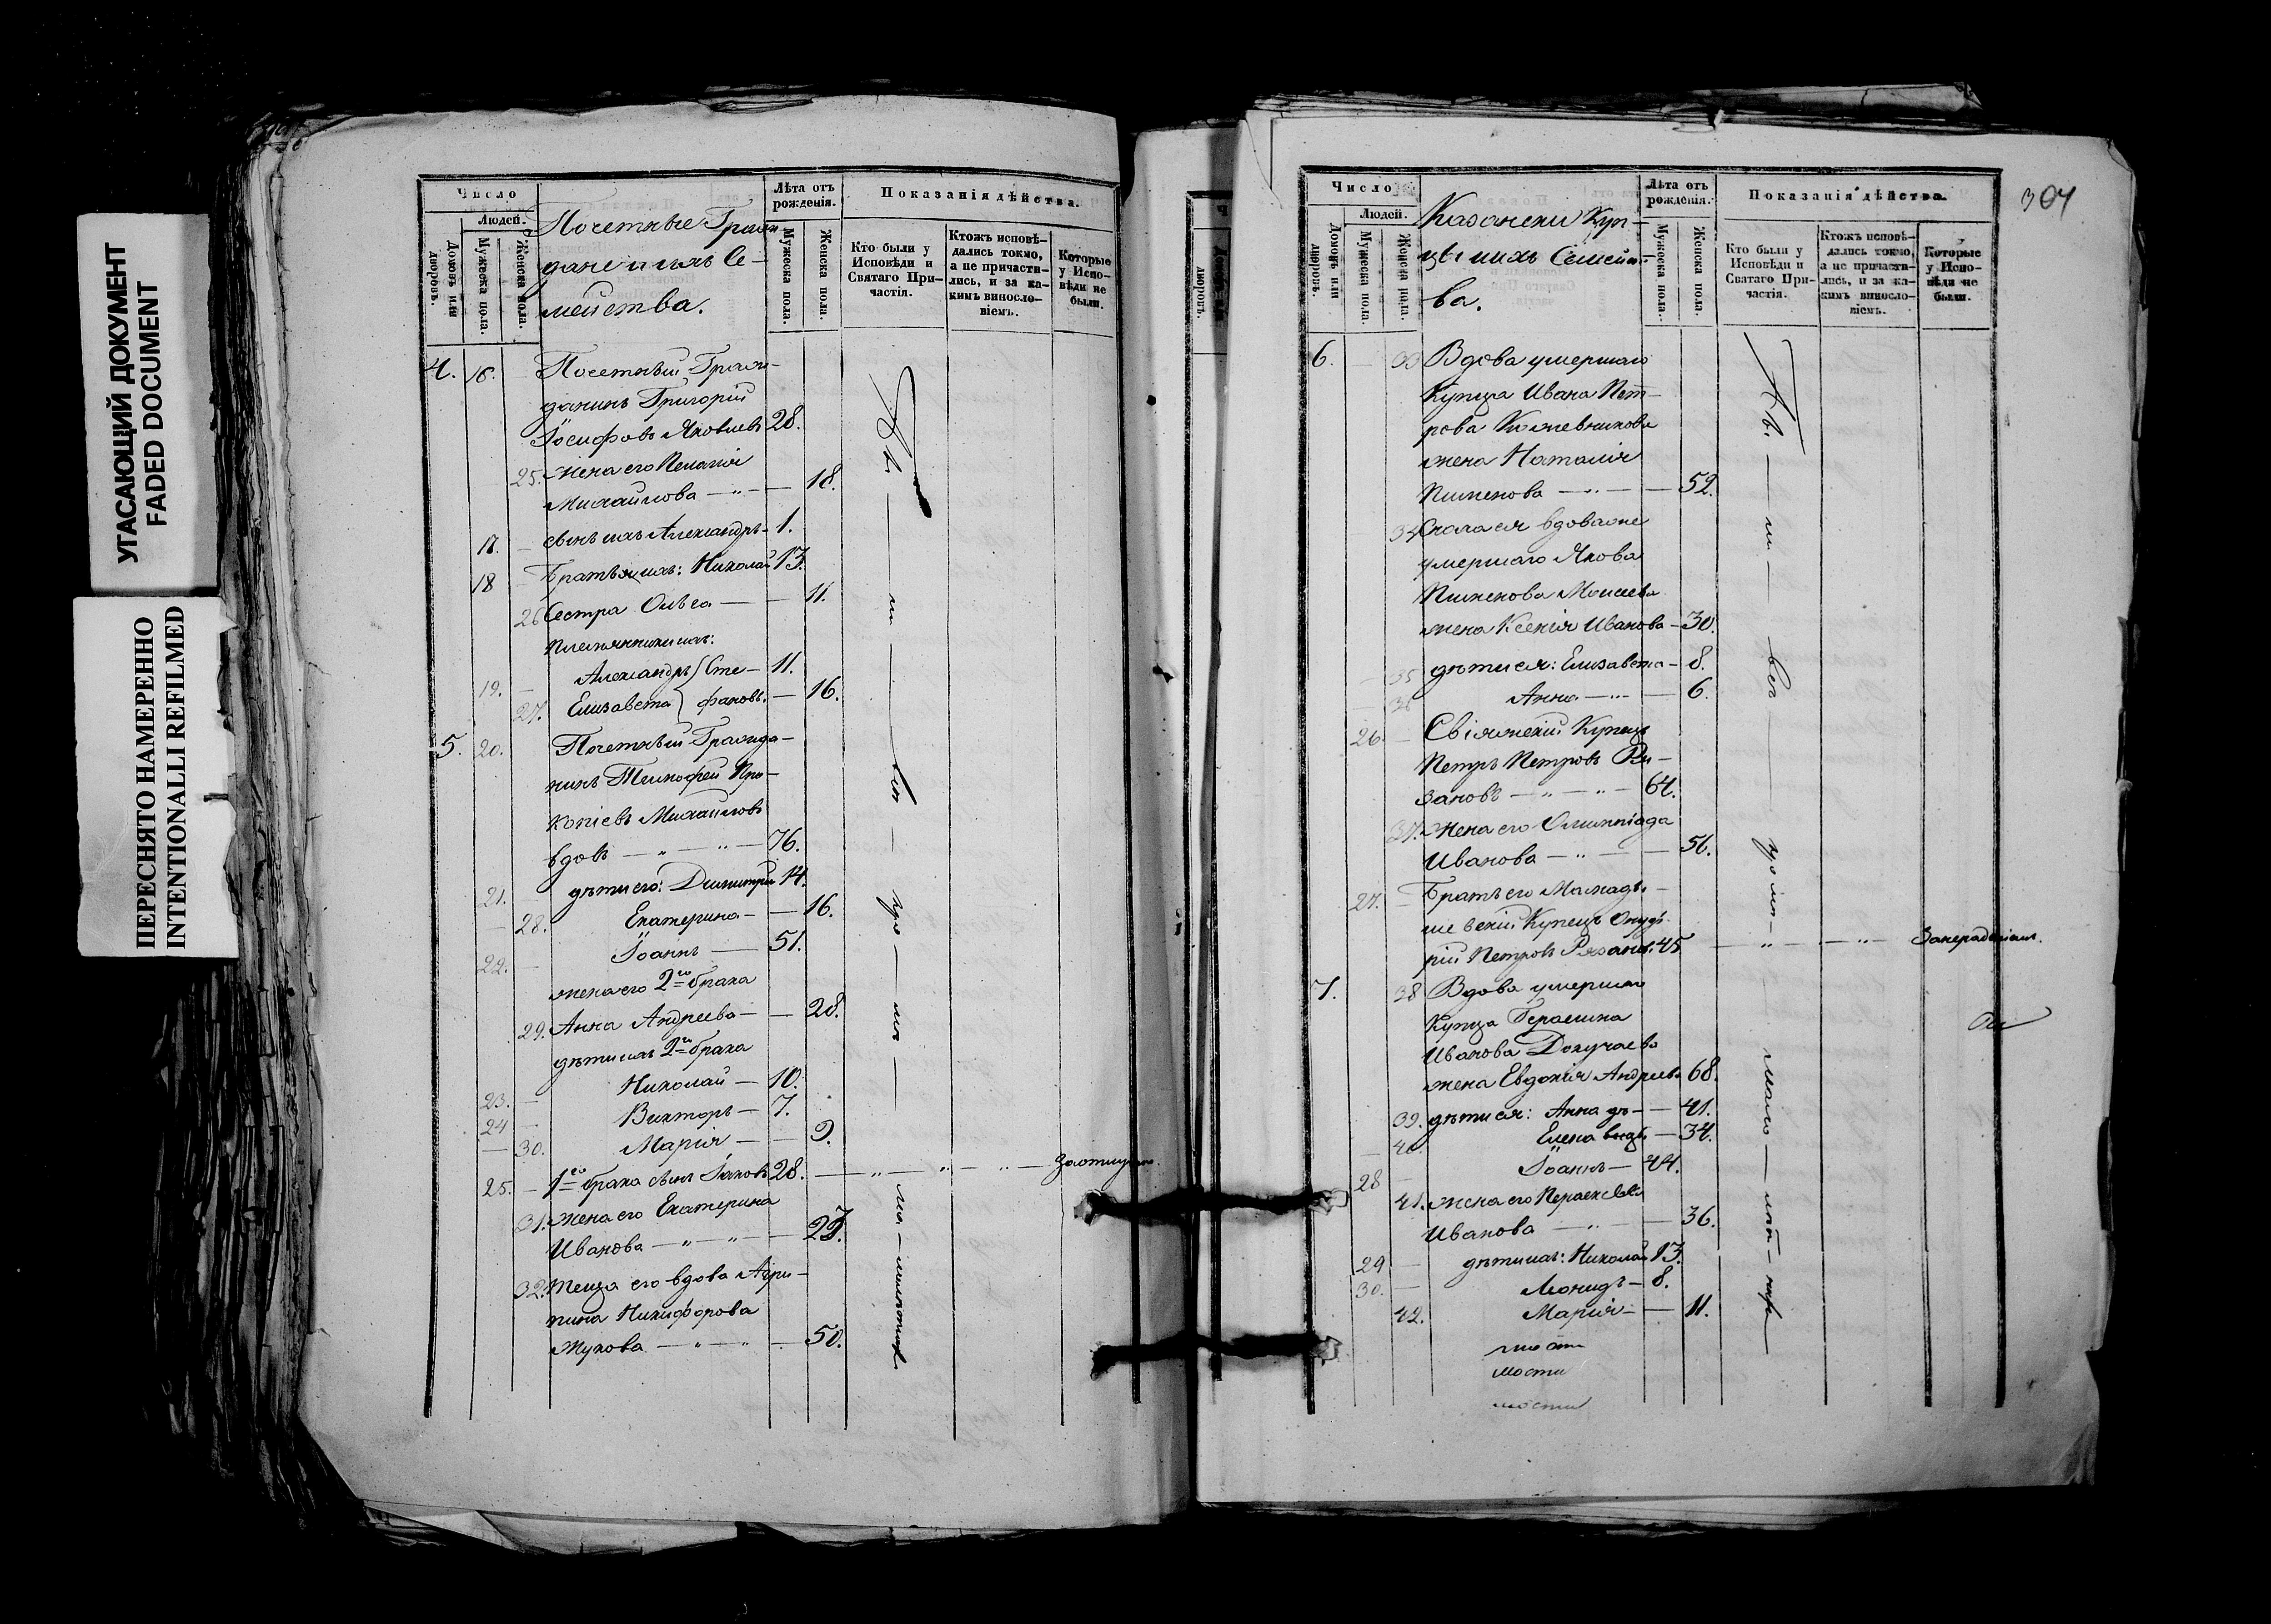 УГАСАЮЩИЙ ДОКУМЕНТ
FADED DOCUMENT
ПЕРЕСНЯТО НАМЕРЕННО
INTENTIONALLI REFILMED
Число
Людей.
Домовъ или дворовъ.
Мужеска пола.
Женска пола.
Почетные Граж-
дане и ихъ Се-
мейства.
Лѣта отъ рожденія.
Мужеска пола.
Женска пола.
Показанія дѣйства.
Кто были у Исповѣди и Святаго Причастія.
Ктожъ исповѣдались токмо, а не причастились, и за какимъ винословіемъ.
Которые у Исповѣди не были.
4. 16. Почетный Граж-
данинъ Григорій
Іосифовъ Яковлевъ 28.
25. жена его Пелагія
Михайлова — 18.
17. сынъ ихъ Александръ 1.
18 Братья ихъ: Николай 13.
26 Сестра Ольга — 11.
Племянники ихъ:
19. Александръ } Сте- 11.
27. Елизавета } фановы. — 16.
5. 20. Почетный Гражда-
нинъ Тимофей Про-
копіевъ Михайловъ
вдовъ — 76.
21. дѣти его: Димитрій 14.
28. Екатерина — 16.
22. Іоаннъ — 51.
жена его 2го брака
29. Анна Андреева — 28.
дѣти ихъ 2го брака
23. Николай — 10.
24 Викторъ — 7.
30. Марія — 9.
25. 1го брака сынъ Іаковъ 28.
31. жена его Екатерина
Иванова — 23.
32. теща его вдова Агри-
пина Никифорова
Жукова — 50.
304
Число
Людей.
Домовъ или дворовъ.
Мужеска пола.
Женска пола.
Казански Куп-
цы и ихъ Семейст-
ва.
Лѣта отъ рожденія.
Мужеска пола.
Женска пола.
Показанія дѣйства.
Кто были у Исповѣди и Святаго Причастія.
Ктожъ исповѣдались токмо, а не причастились, и за какимъ винословіемъ.
Которые у Исповѣди не были.
6. 33 Вдова умершаго
Купца Ивана Пет-
рова Кожевникова
жена Наталія
Пименова — 52.
34 Сноха ея вдова же
умершаго Якова
Пименова Моисеева
жена Ксенія Иванова — 30.
35 дѣти ея: Елизавета — 8.
36 Анна — 6.
26. Свіяжскій Купецъ
Петръ Петровъ Ря-
зановъ — 64.
37. Жена его Олимпіада
Иванова — 56.
27. Братъ его Мамады-
шевскій Купецъ
рій Петровъ Рязановъ 45
7. 38 Вдова умершаго
Купца Герасима
Иванова Докучаева
жена Евдокія Андреева 68.
39. дѣти ея: Анна дѣ — 41.
40 Елена — 34.
28 Іоаннъ — 44.
41. жена его Параскева
Иванова — 36.
29 дѣти ихъ: Николай 13.
30. Леонидъ — 8.
42. Марія — 11.